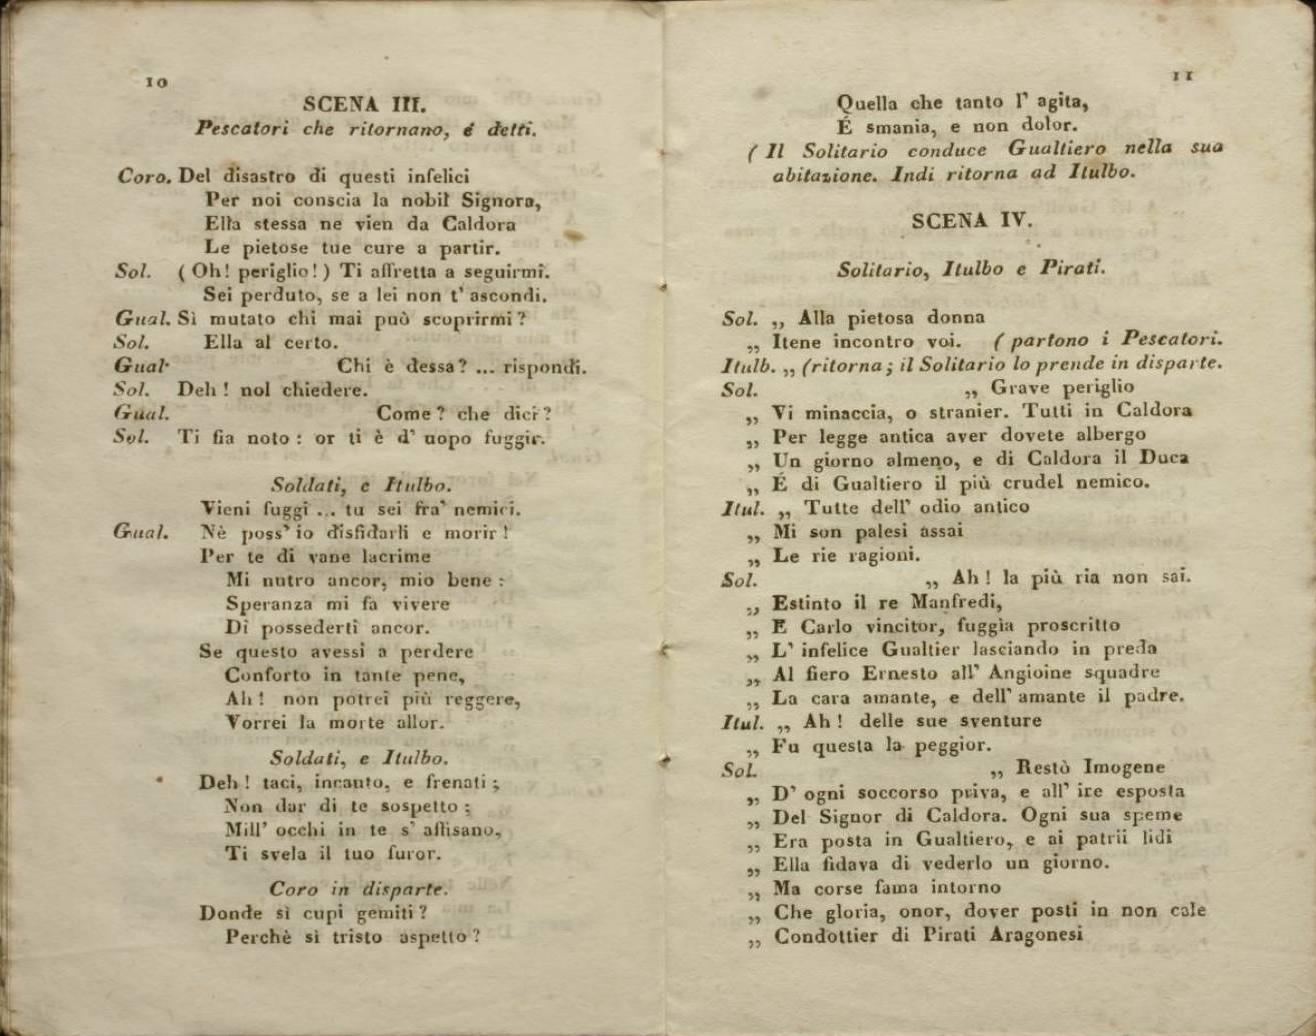 10
SCENA III.
Pescatori che ritornano, é detti.
Coro. Del disastro di questi infelici
Per noi conscia la nobil Signora,
Ella stessa ne vien da Caldora
Le pietose tue cure a partir.
Sol. ( Oh! periglio! ) Ti affretta a seguirmi.
Sei perduto, se a lei non t' ascondi.
Gual. Sì mutato chi mai può scoprirmi?
Sol. Ella al certo.
Gual. Chi è dessa? ... rispondi.
Sol. Deh! nol chiedere.
Gual. Come? che dici?
Sol. Ti fia noto: or ti è d' uopo fuggir.
Soldati, e Itulbo.
Vieni fuggi ... tu sei fra' nemici.
Gual. Nè poss' io disfidarli e morir!
Per te di vane lacrime
Mi nutro ancor, mio bene:
Speranza mi fa vivere
Di possederti ancor.
Se questo avessi a perdere
Conforto in tante pene,
Ah! non potrei più reggere,
Vorrei la morte allor.
Soldati, e Itulbo.
Deh! taci, incauto, e frenati;
Non dar di te sospetto:
Mill' occhi in te s' affisano,
Ti svela il tuo furor.
Coro in disparte.
Donde sì cupi gemiti?
Perchè sì tristo aspetto?
11
Quella che tanto l' agita,
É smania, e non dolor.
( Il Solitario conduce Gualtiero nella sua
abitazione. Indi ritorna ad Itulbo.
SCENA IV.
Solitario, Itulbo e Pirati.
Sol. ,, Alla pietosa donna
,, Itene incontro voi. ( partono i Pescatori.
Itulb. ,, (ritorna; il Solitario lo prende in disparte.
Sol. ,, Grave periglio
,, Vi minaccia, o stranier. Tutti in Caldora
,, Per legge antica aver dovete albergo
,, Un giorno almeno, e di Caldora il Duca
,, É di Gualtiero il più crudel nemico.
Itul. ,, Tutte dell' odio antico
,, Mi son palesi assai
,, Le rie ragioni.
Sol. ,, Ah! la più ria non sai.
,, Estinto il re Manfredi,
,, E Carlo vincitor, fuggìa proscritto
,, L' infelice Gualtier lasciando in preda
,, Al fiero Ernesto all' Angioine squadre
,, La cara amante, e dell' amante il padre.
Itul. ,, Ah! delle sue sventure
,, Fu questa la peggior.
Sol. ,, Restò Imogene
,, D' ogni soccorso priva, e all' ire esposta
,, Del Signor di Caldora. Ogni sua speme
,, Era posta in Gualtiero, e ai patrii lidi
,, Ella fidava di vederlo un giorno.
,, Ma corse fama intorno
,, Che gloria, onor, dover posti in non cale
,, Condottier di Pirati Aragonesi